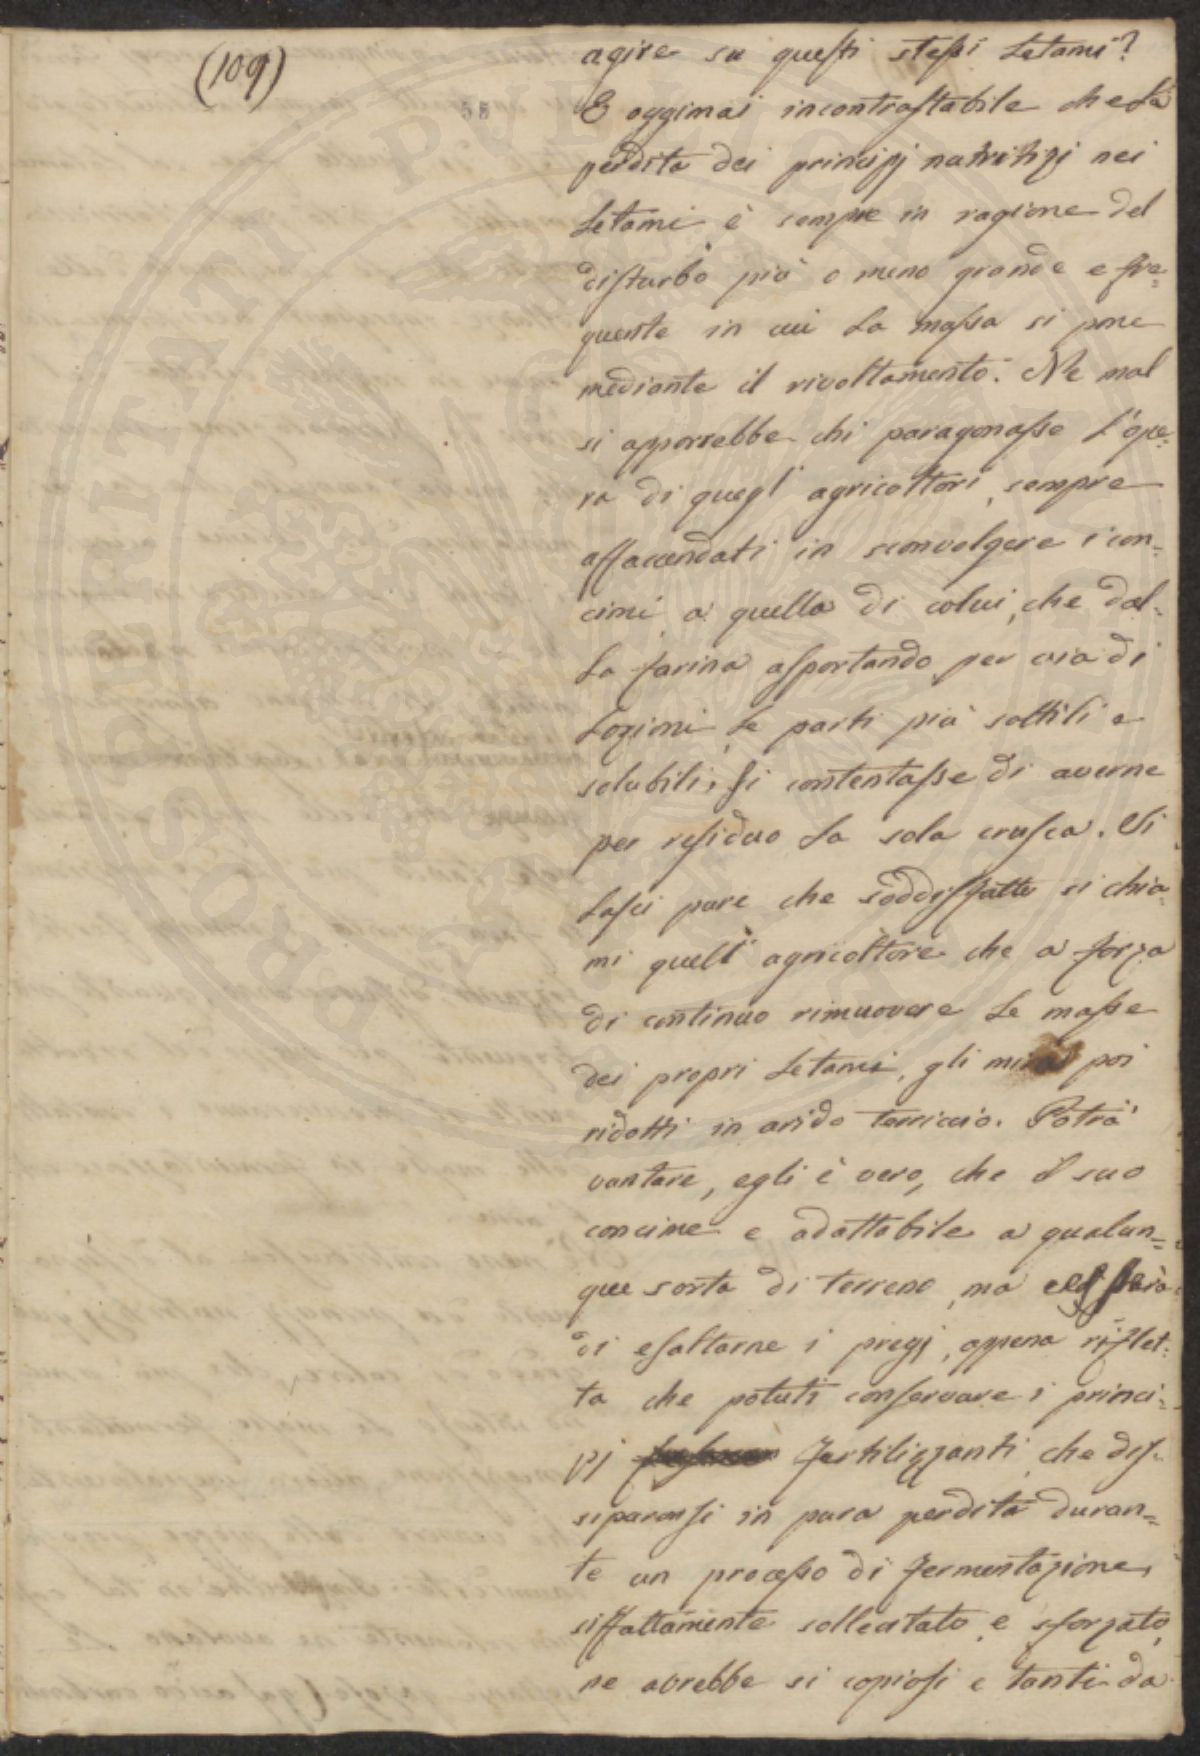 (109)
58
agire su questi stessi letami?
E oggimai incontrastabile che la
perdita dei principj nutritizj nei
letami è sempre in ragione del
disturbo più o meno grande e fre=
quente in cui la massa si pone
mediante il rivoltamento. Ne mal
si apporrebbe chi paragonasse l'ope=
ra di quegl' agricoltori, sempre
affacendati in sconvolgere i con=
cimi a quella di colui, che dal=
la farina asportando per via di
lozioni le parti più sottili e
solubili, si contentasse di averne
per residuo la sola crusca. Si
lasci pure che soddisfatto si chia=
mi quell' agricoltore che a forza
di continuo rimuovere le masse
dei propri letami, gli mira poi
ridotti in arido terriccio. Potrà
vantare, egli è vero, che il suo
concime e adattabile a qualun=
que sorta di terreno, ma
di esaltarne i pregj, appena riflet=
ta che potuti conservare i princi=
pj fertilizzanti che dis=
siparonsi in pura perdita duran=
te un processo di fermentazione,
siffattamente sollecitato e sforzato,
ne avrebbe si copiosi e tanti da